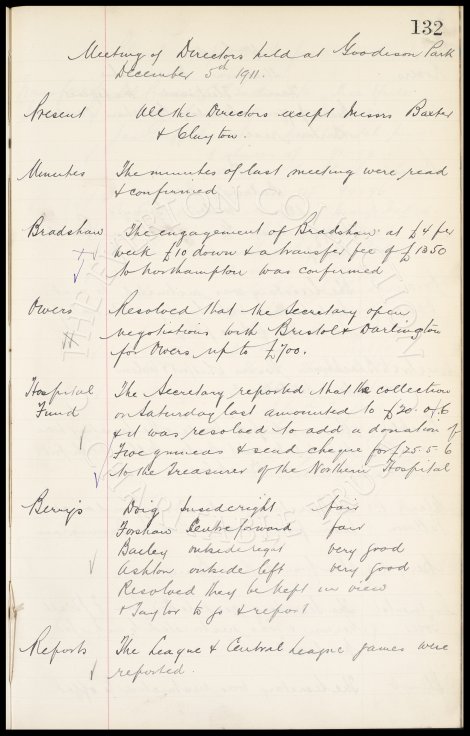 132
Meeting of Directors held at Goodison Park
December 5th 1911.
Present All the Directors except Messrs Baxter
& Clayton.
Minutes The minutes of last meeting were read
& confirmed
Bradshaw The engagement of Bradshaw at £4 per
week £10 down & a transfer fee of £1350
to Northampton was confirmed
Owers Resolved that the Secretary open
negotiations with Bristol & Darlington
for Owers up to £700.
Hospital The Secretary reported that the collection
Fund on Saturday last amounted to £20. 0. 6
& it was resolved to add a donation of
Five guineas & send cheque for £25. 5. 6
to the Treasurer of the Northern Hospital
Doig Inside right fair
Forshaw Centre forward fair
Bailey outside right very good
Ashton outside left very good
Resolved they be kept in view
& Taylor to go & report
Reports The League & Central League games were
reported.